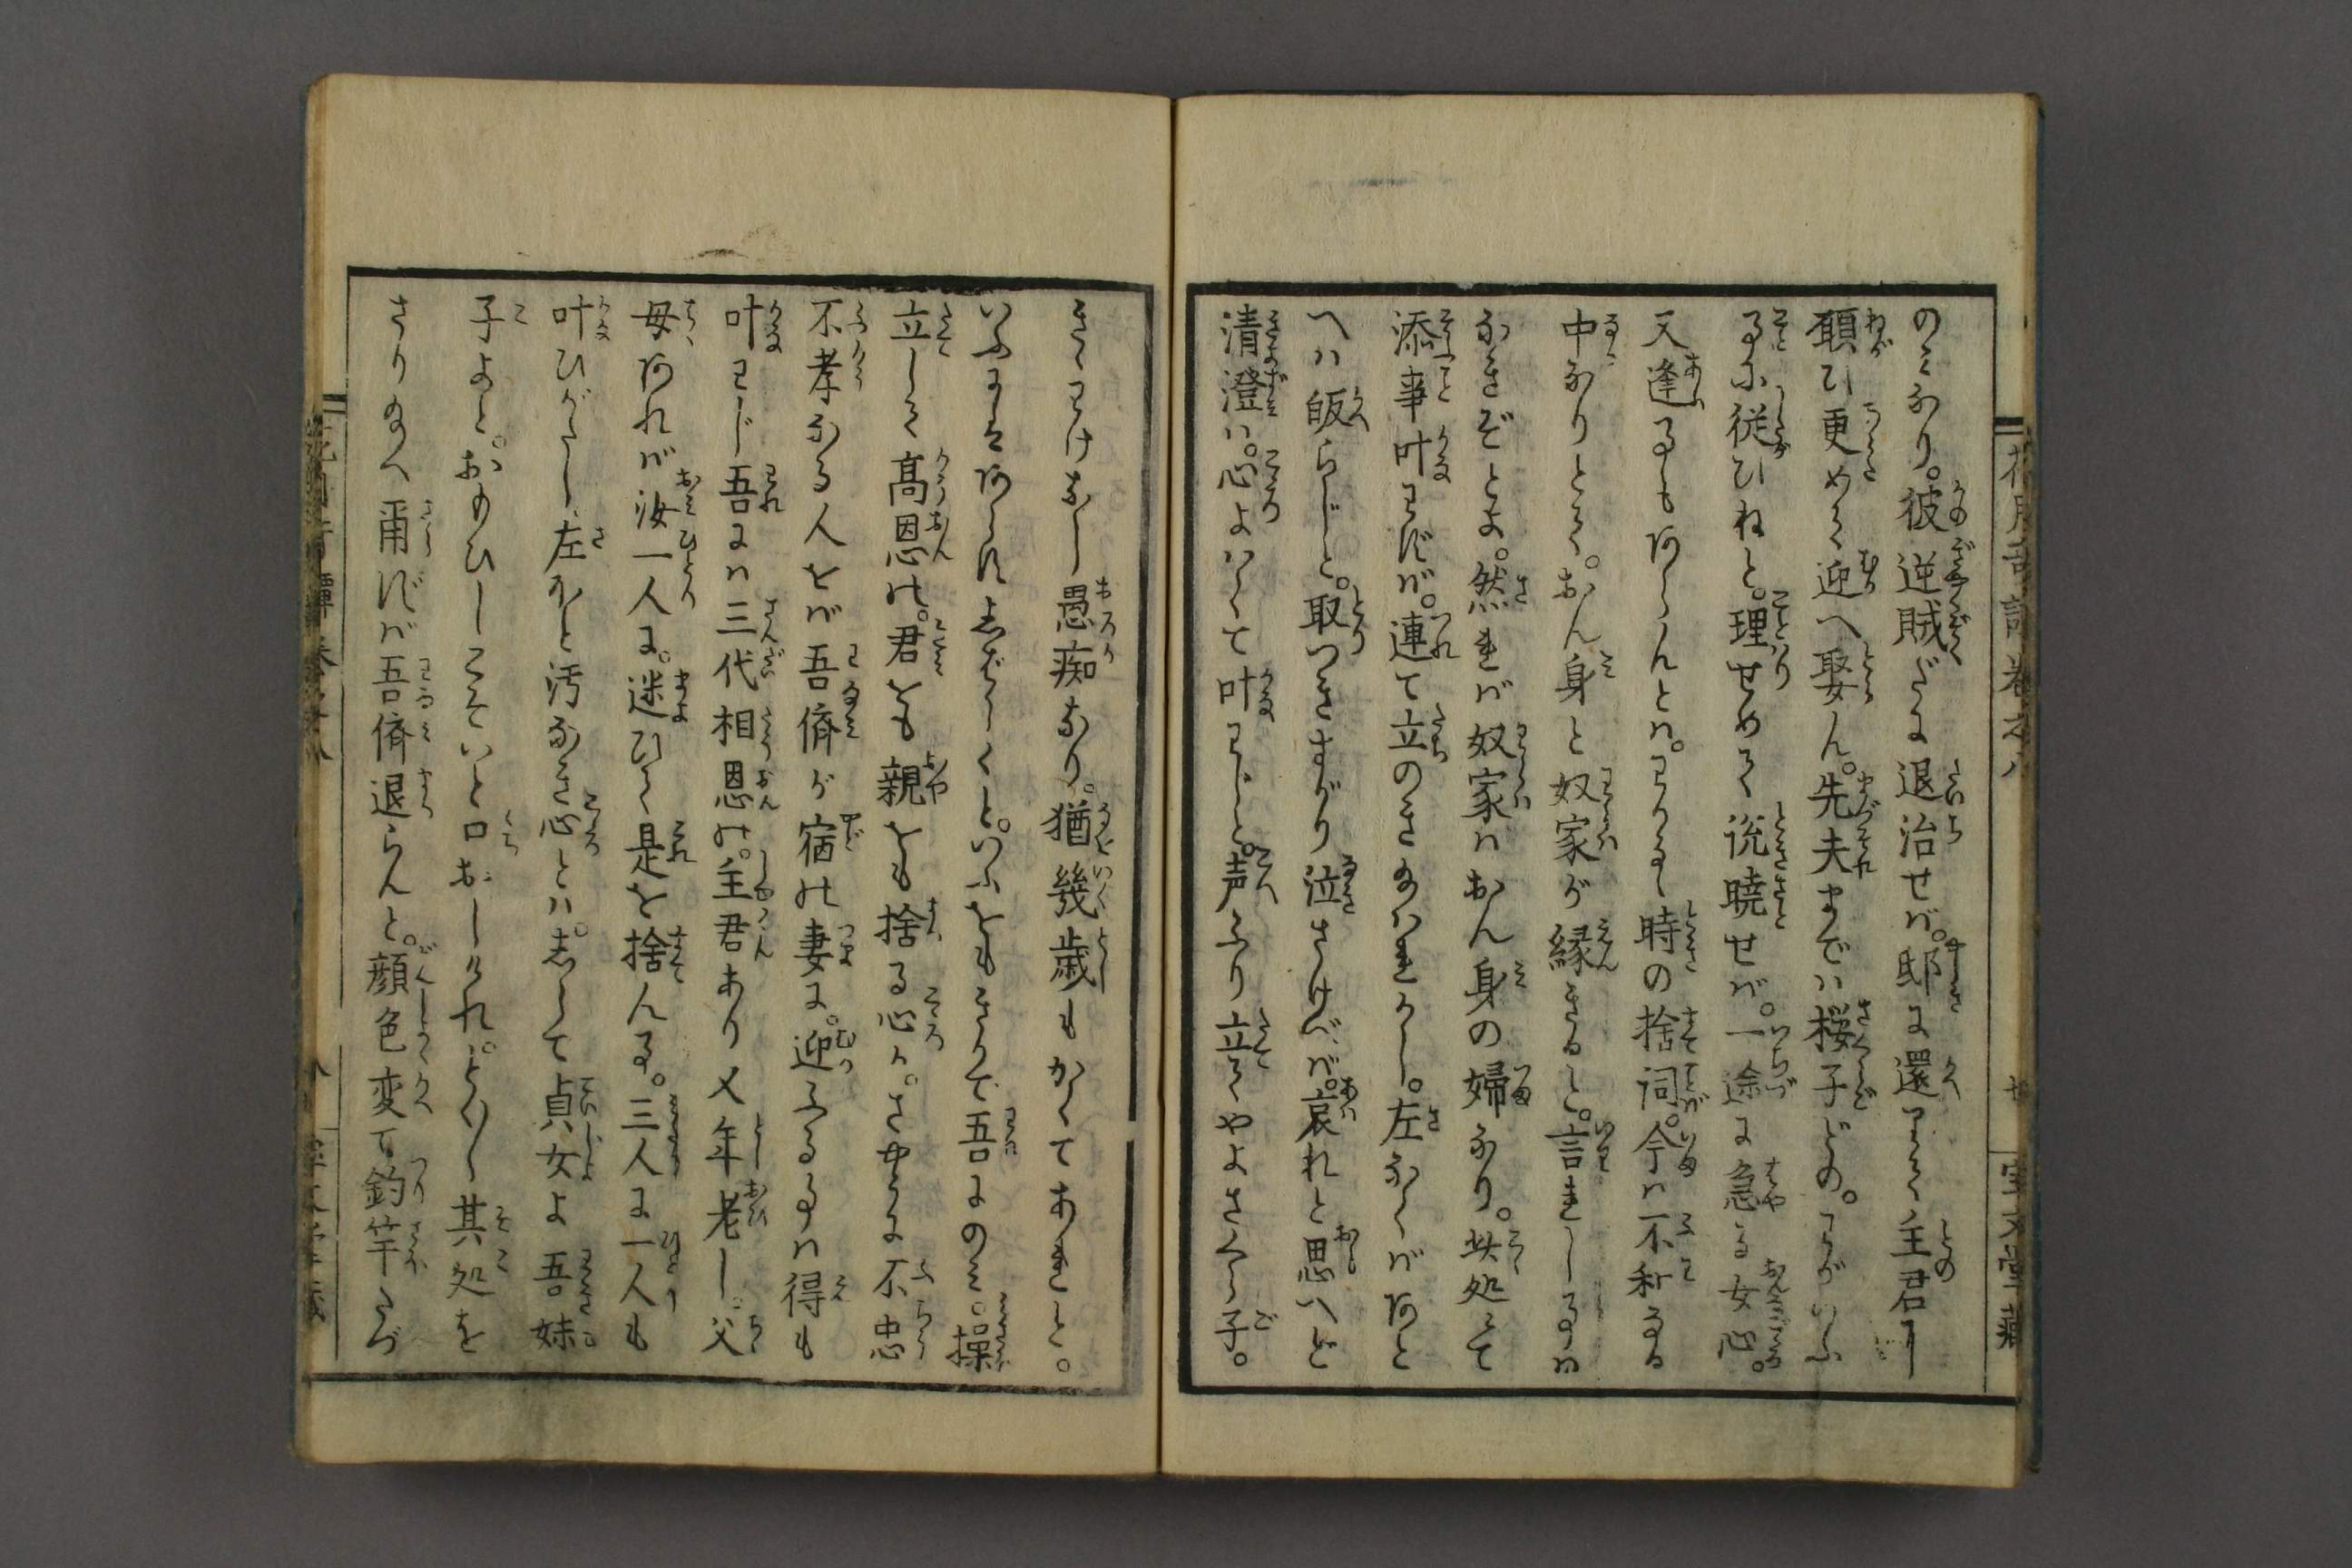 のみなり。彼逆賊だに退治せば。邸に還りて主君に
願ひ更めて迎へ娶ん。先夫までは桜子どの。わがいふ
ことに従ひねと。理せめて説暁せば。一途に急る女心。
又逢ことも
時の捨詞。今は不和なる
中なりとて。おん身と奴家が縁きると。言れしことは
なきぞとよ。然れば奴家はおん身の婦なり。此処にて
添事叶はずば。連て立のき給はれかし。左なくばあと
へは皈らじと。取つきすがり泣さけべば。哀れと思へど
清澄は。心よはくて叶はじと。声ふり立てやよさくら子。
きゝわけなし愚痴なり。猶幾歳もかくてあれと。
いふにはあらずしばらくと。いふをもきかで吾にのみ。操
立して高恩の。君をも親をも捨る心か。さやうに不忠
不孝なる人をば吾儕が宿の妻に。迎ふることは得も
叶はじ吾には三代相恩の。主君あり又年老し。父
母あれば汝一人に。迷ひて是を捨んこと。三人に一人も
叶ひがたし、左ほど汚なき心とは。しらで貞女よ吾妹
子よと。おもひしこそいと口おしけれ。とく〳〵其処を
さり給へ爾ずば吾儕退らんと。顔色変て釣竿たづ
花月奇譚巻之八
宝文堂蔵